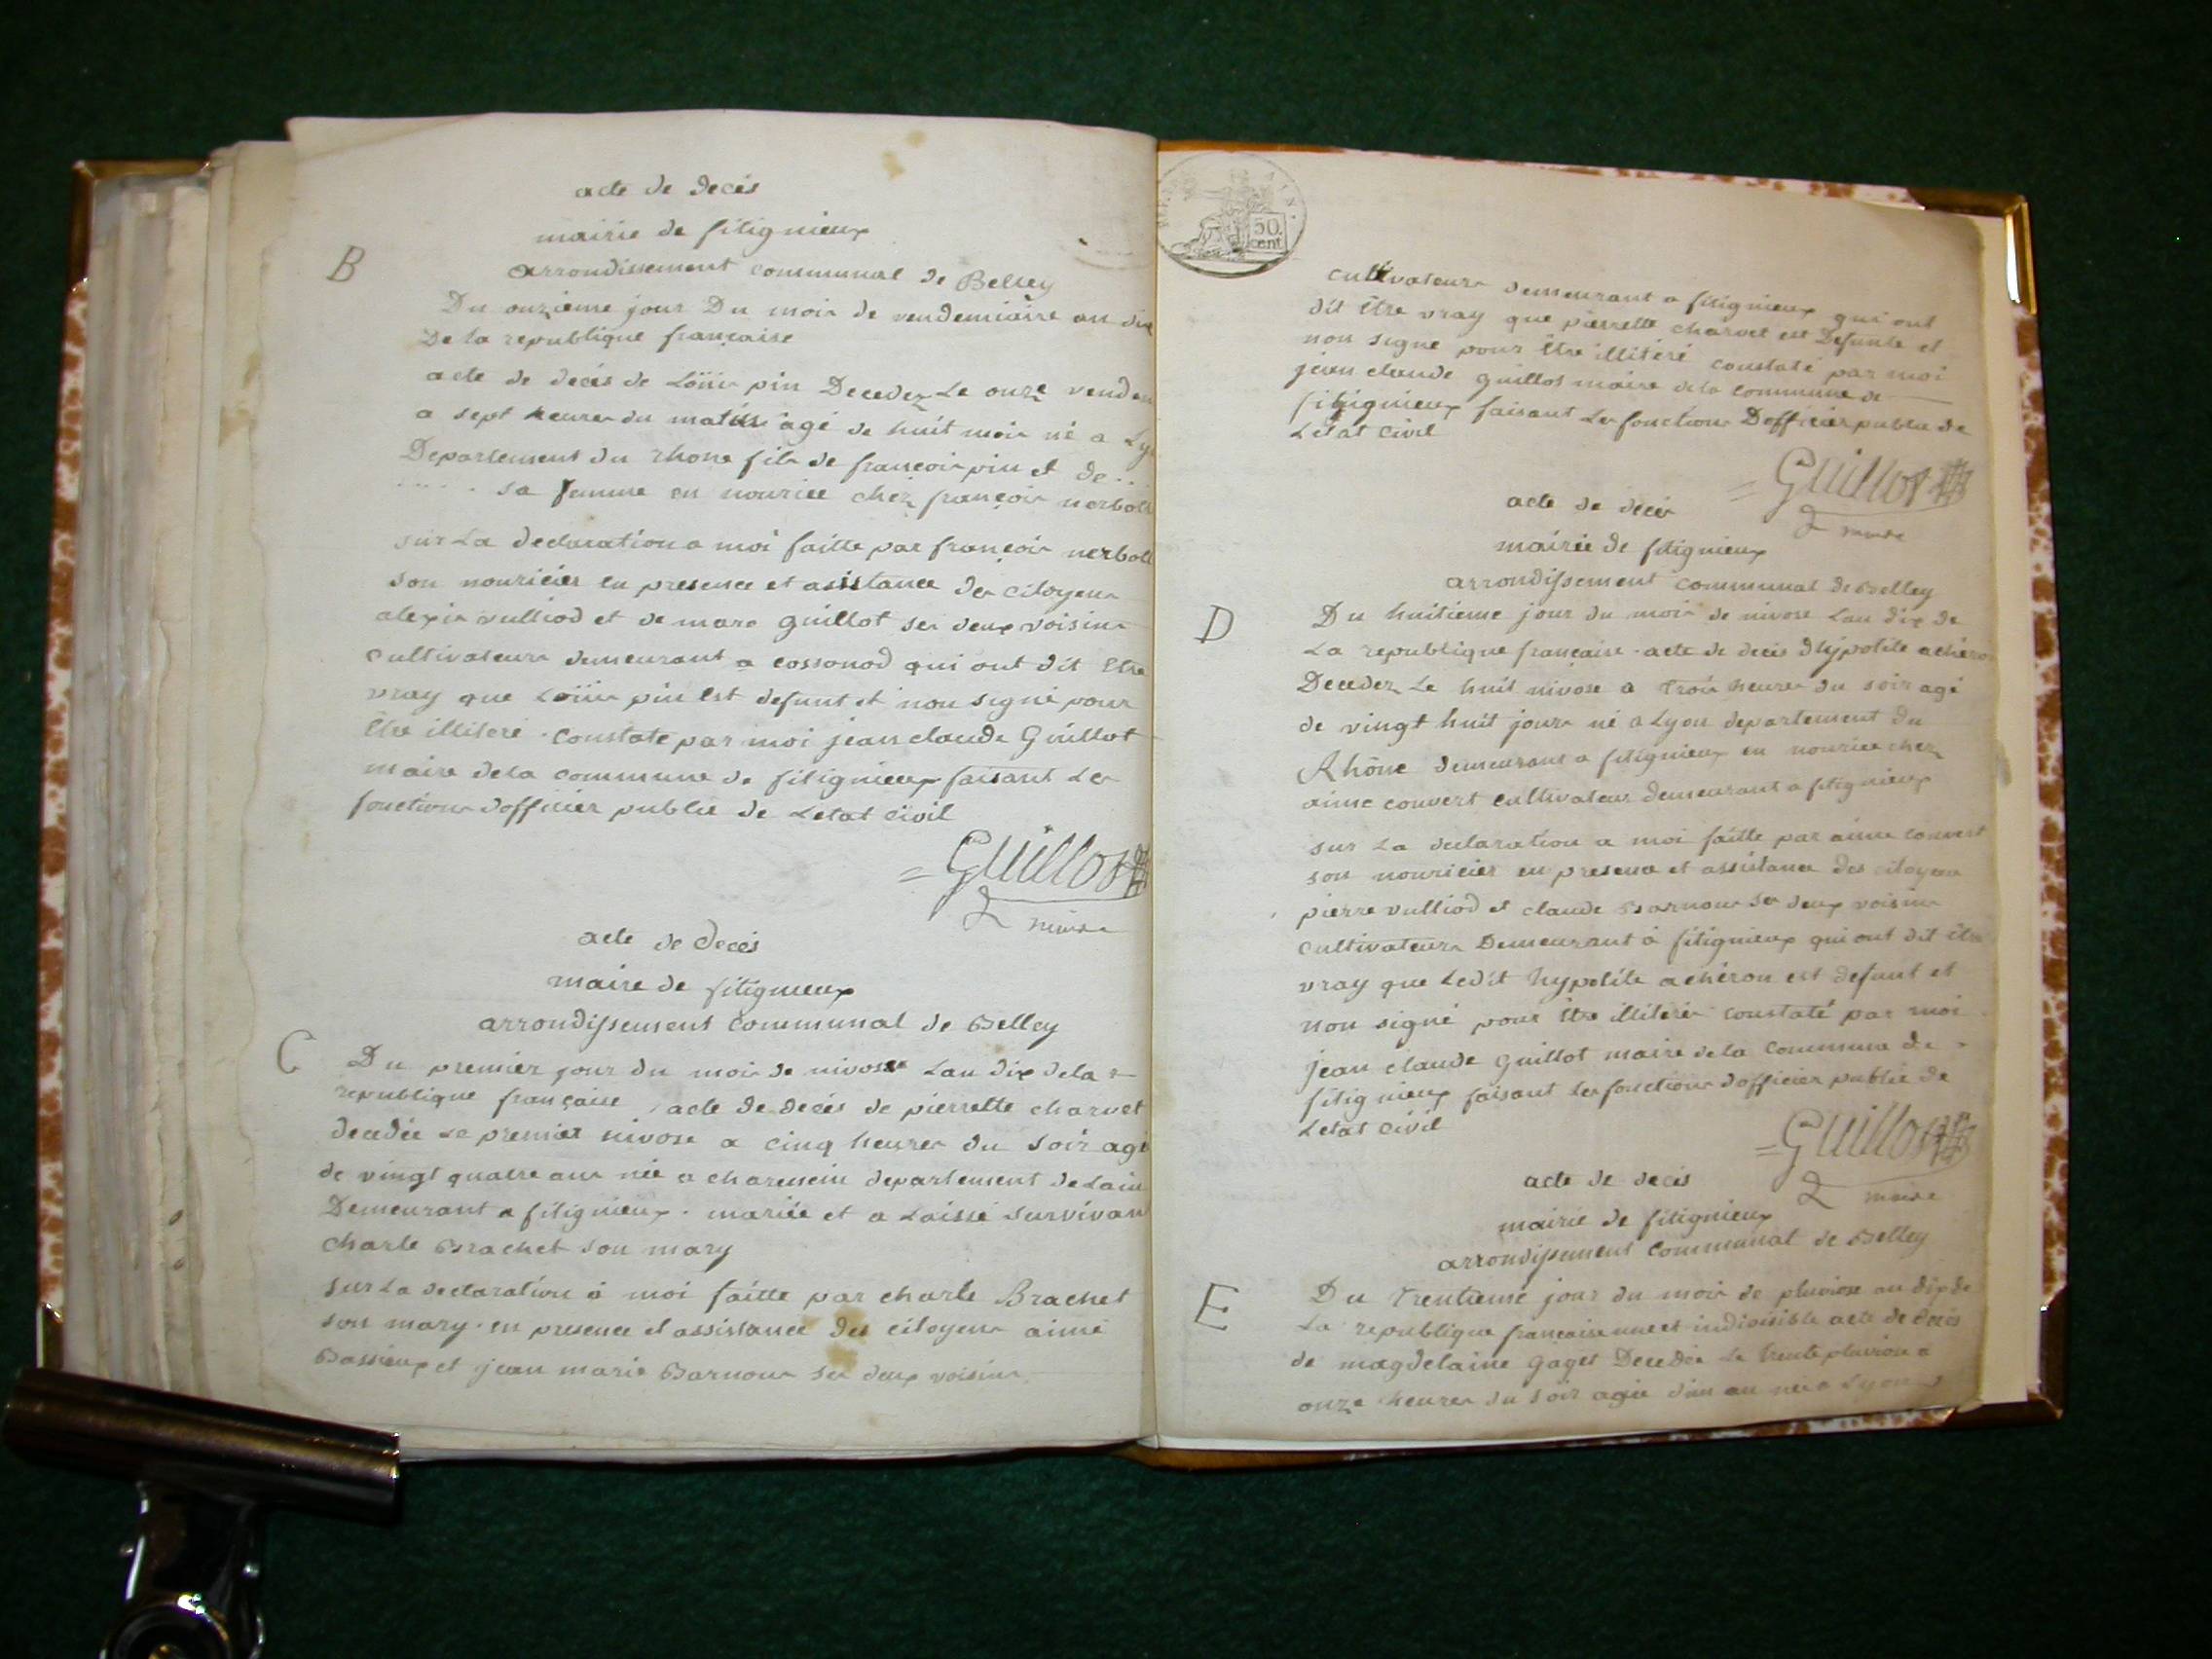 acte de decés
mairie de fitignieux
B
arrondissement communal de Belley
Du onzieme jour Du mois de vendemiaire an dix
De la republique française
acte de decés de Loüis pin Decedez Le onze vendem
a sept heures du matin agé de huit mois né a Ly
Departement du rhone fils de françois pin et de ..
..... sa femme en nourice chez françois nerboll
sur La declaration a moi faitte par françois nerboll
son nouricier en presence et asistance des citoyens
alexis vulliod et de marc guillot ses deux voisins
cultivateurs demeurant a cossonod qui ont dit Etre
vray que Loüis pin Est defunt et non signé pour
Etre illiteré . Constaté par moi jean claude Guillot
maire dela commune de fitignieux faisant Les
fonctions dofficier public de Letat civil
= Guillot
maire
acte de decés
maire de fitignieux
arrondissement communal de Belley
C
Du premier jour du mois de nivose Lan dix dela
republique française , acte de decés de pierrette charvet
decedée Le premier nivose a cinq heures du soir agé
de vingt quatre ans née a charencin departement de Lain
Demeurant a fitignieux . mariée et a Laissé survivan
charle Brachet son mary
sur La declaration à moi faitte par charle Brachet
son mary . en presence et assistance des citoyens aimé
Bassieux et jean marie Barnoux ses deux voisins
50
cent
cultivateurs demeurant a fitignieux qui ont
dit Etre vray que pierrette charvet est Defunte et
non signé pour Etre illiteré constaté par moi
jean claude guillot maire dela commune de
fitignieux faisant Les fonctions Dofficier public de
Letat civil
= Guillot
maire
acte de decés
mairie de fitignieux
arrondissement communal de Belley
D
Du huitieme jour du mois de nivose Lan dix de
La republique française . acte de decés dhypolite achéron
Decedez Le huit nivose a trois heures du soir agé
de vingt huit jours né a Lyon departement du
Rhône demeurant a fitignieux en nourice chez
aimé convert cultivateur demeurant a fitignieux
sur La declaration a moi faitte par aimé convert
son nouricier en presence et assistance des citoyens
pierre vulliod et claude Barnoux ses deux voisins
cultivateurs Demeurant à fitignieux qui ont dit etre
vray que Ledit hypolite achéron est defunt et
non signé pour Etre illiteré constaté par moi
jean claude Guillot maire dela commune de
fitignieux faisant Les fonctions dofficier public de
Letat civil
= Guillot
maire
acte de decés
mairie de fitignieux
arrondissement communal de Belley
E
Du trentieme jour du mois de pluviose an dix de
La republique francaise une et indivisible acte de decés
de magdelaine gaget Decedée Le trente pluviose a
onze heures du soir agée dun an née a Lyon